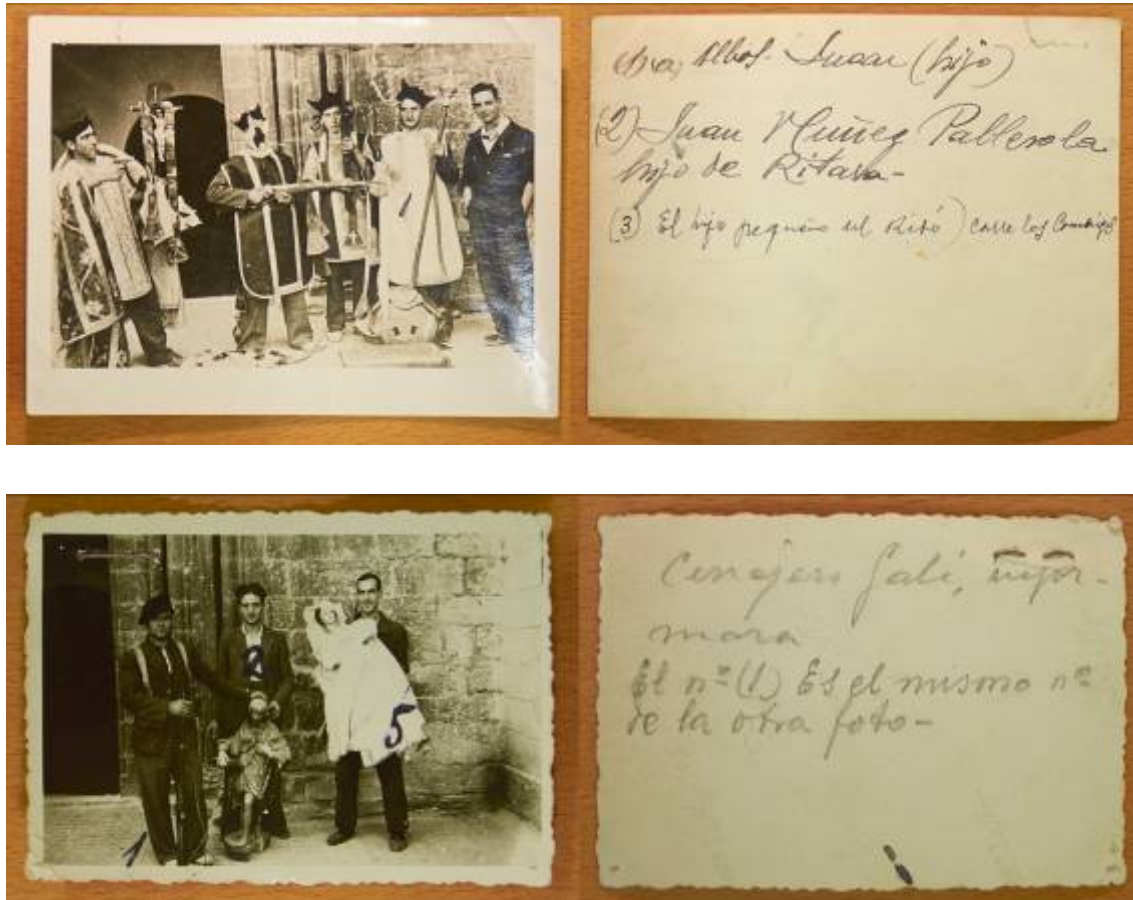 Albos - Juan (hijo)
(2) Juan Nuñez Pallerola
hijo de Ritara -
(3) El hijo pequeño del Ritó) carre los
2
5
1
Cerrajero Gali, infor-
mara
El nº (1) Es el mismo nº
de la otra foto -